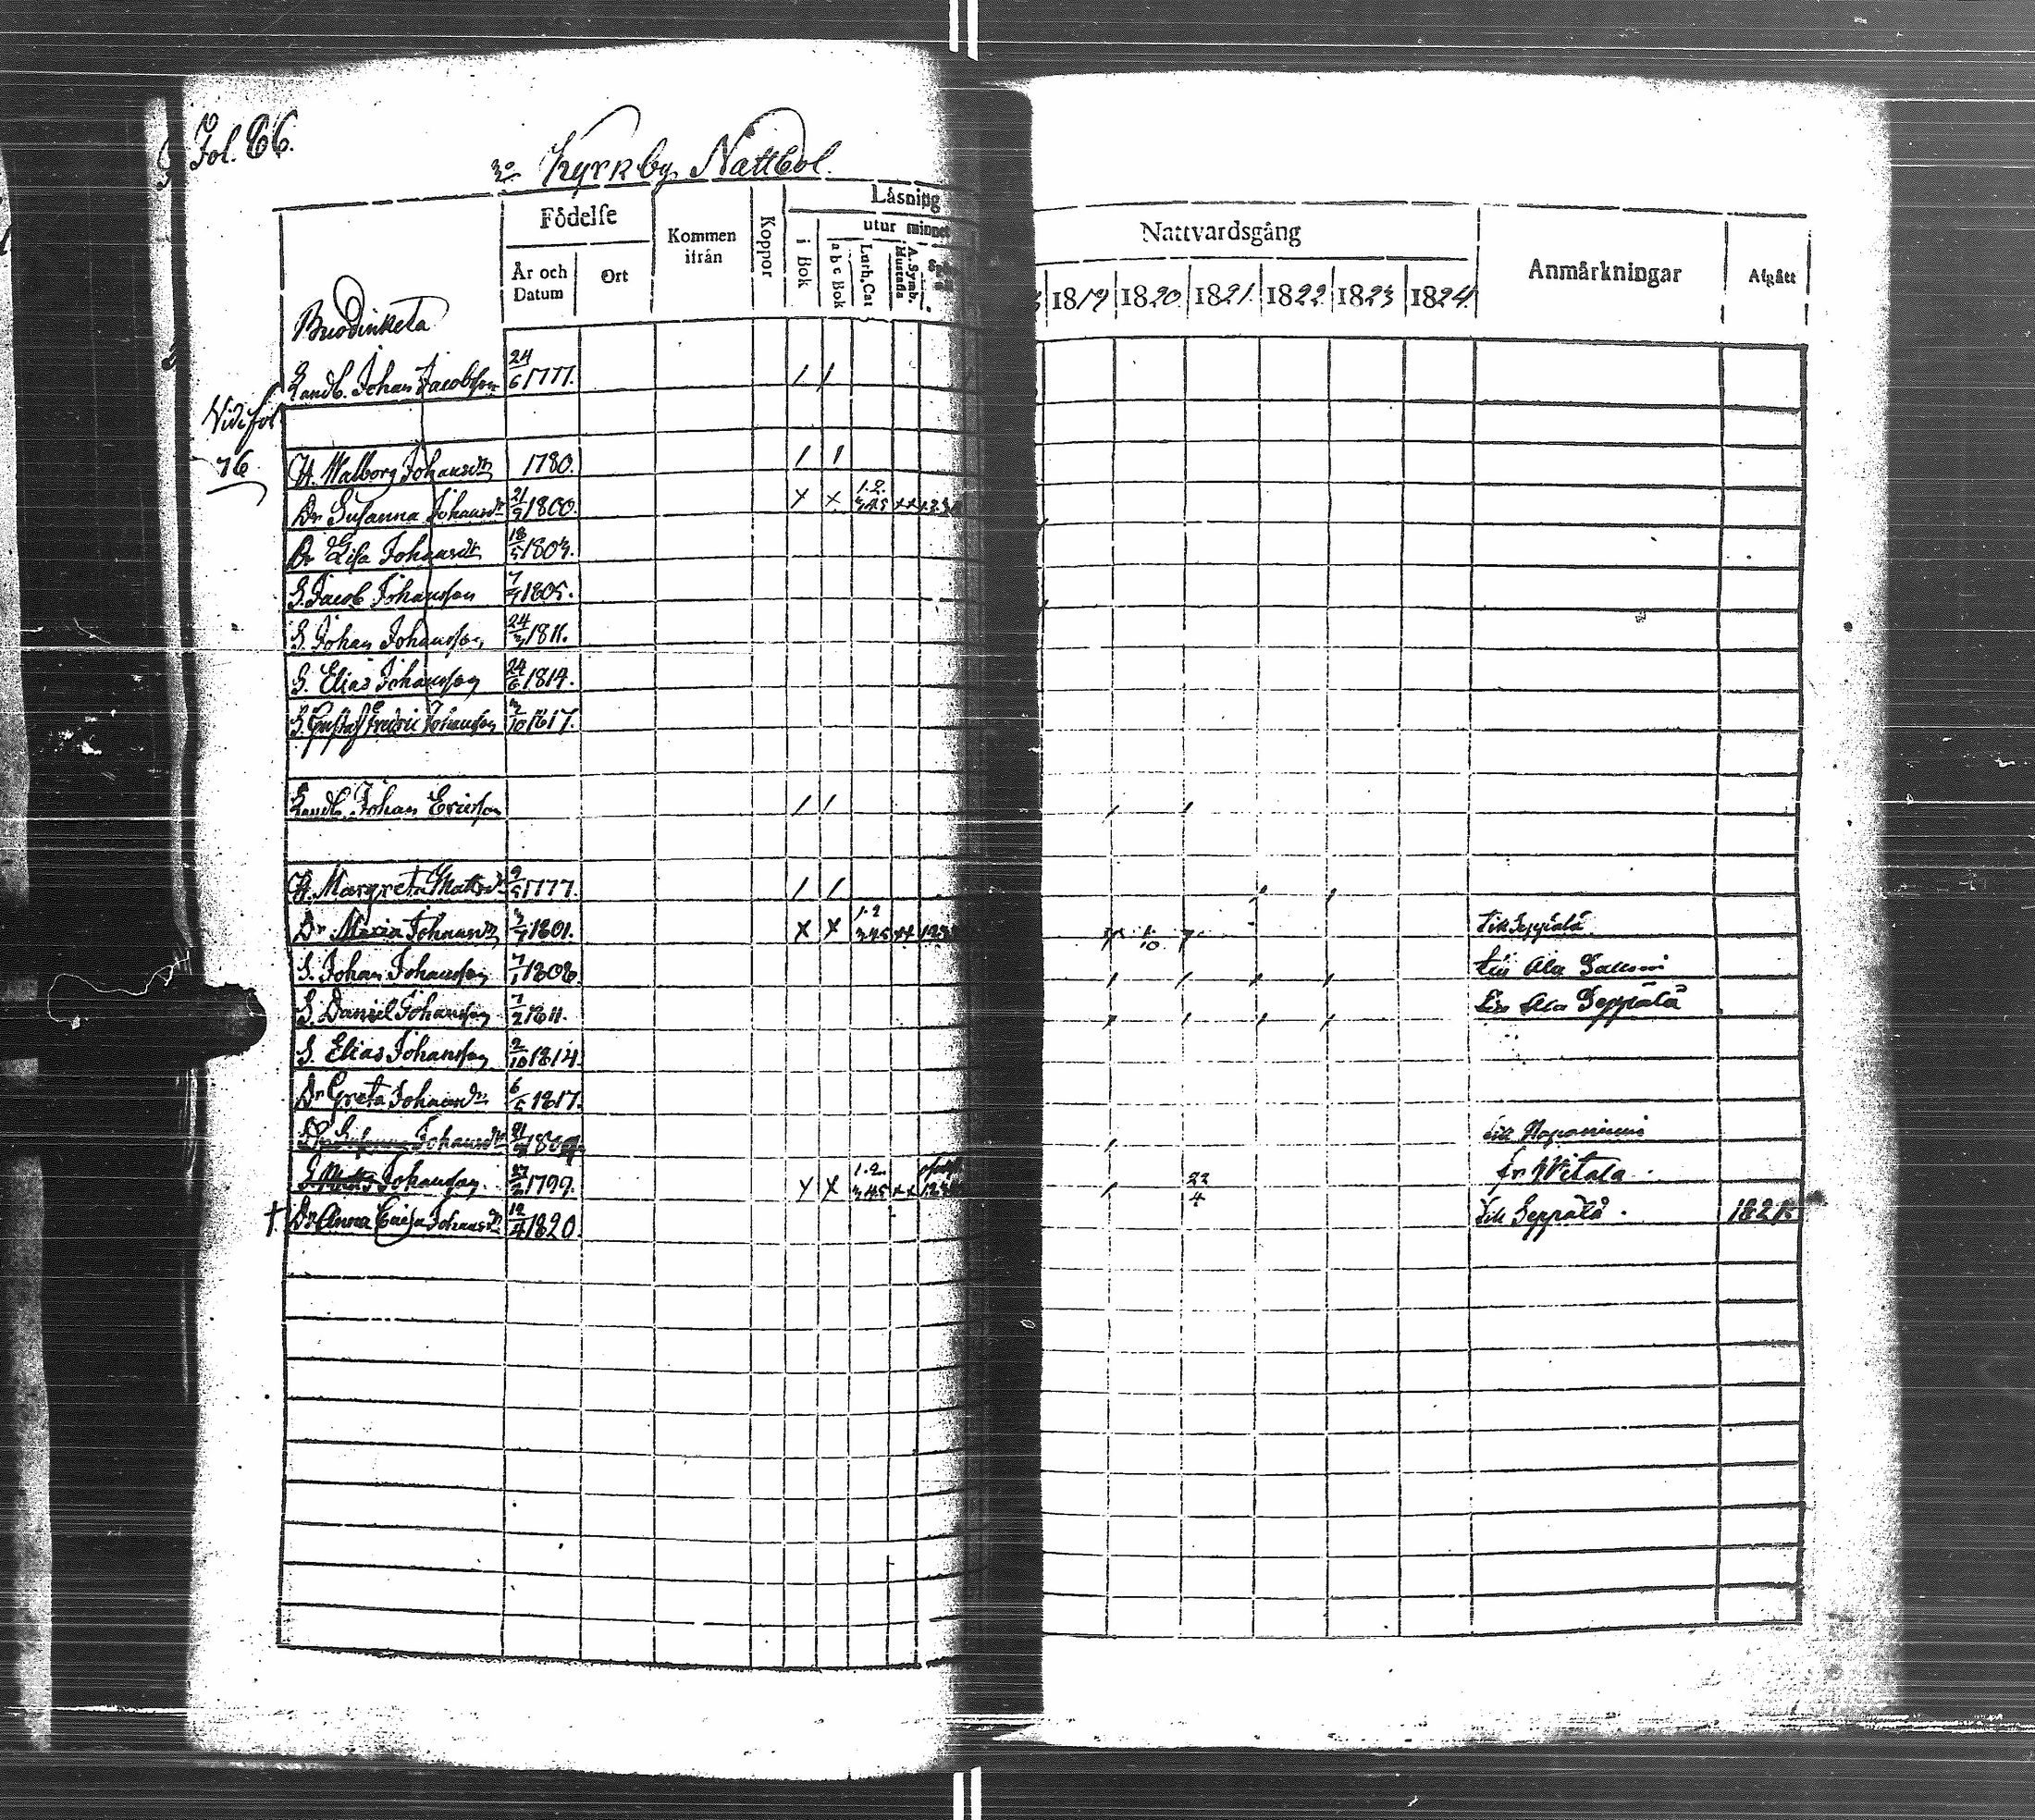 Fol. 66.
3o Kyrkby Nattbol.
Födelse
År och Datum
Ort
Kommen ifrån
Koppor
Läsning
utur minnet
i Bok
a b c Bok
Luth. Cat
A. Symb. Hustafla
Nattvardsgång
1819 1820 1821. 1822 1823 1824.
Anmärkningar
Afgått
Landb. Johan Jacobsson 24/6 1777. / /
Vide fol 76
H. Walborg Johansdr 1780. / /
Dr Susanna Johansdr 21/7 1800. x x 1.2. 3.4.5 x x
Dr Lisa Johansdr 18/5 1803.
S. Jacob Johansson 7/7 1805.
S. Johan Johansson 24/3 1811.
S. Elias Johansson 24/6 1814.
S. Gustaf Fredric Johansson 3/10 1817.
Landb. Johan Ericsson / /
H. Margreta Matsdr 9/5 1777. / /
Dr Maria Johansdr 3/7 1801. x x 1.2 3.4.5 x x 1/10 till Seppälä
S. Johan Johansson 7/1 1808. till Ala
S. Daniel Johansson 7/2 1811. Ala Seppälä
S. Elias Johansson 2/10 1814.
Dr Greta Johansdr 6/5 1817.
Johansdr till
S. Matts Johansson 1799. x x 1.2. 3.4.5 x x 22/4 fr Witala.
† Dr Anna Caisa Johansdr 12/4 1820. till Seppälä. 1821.